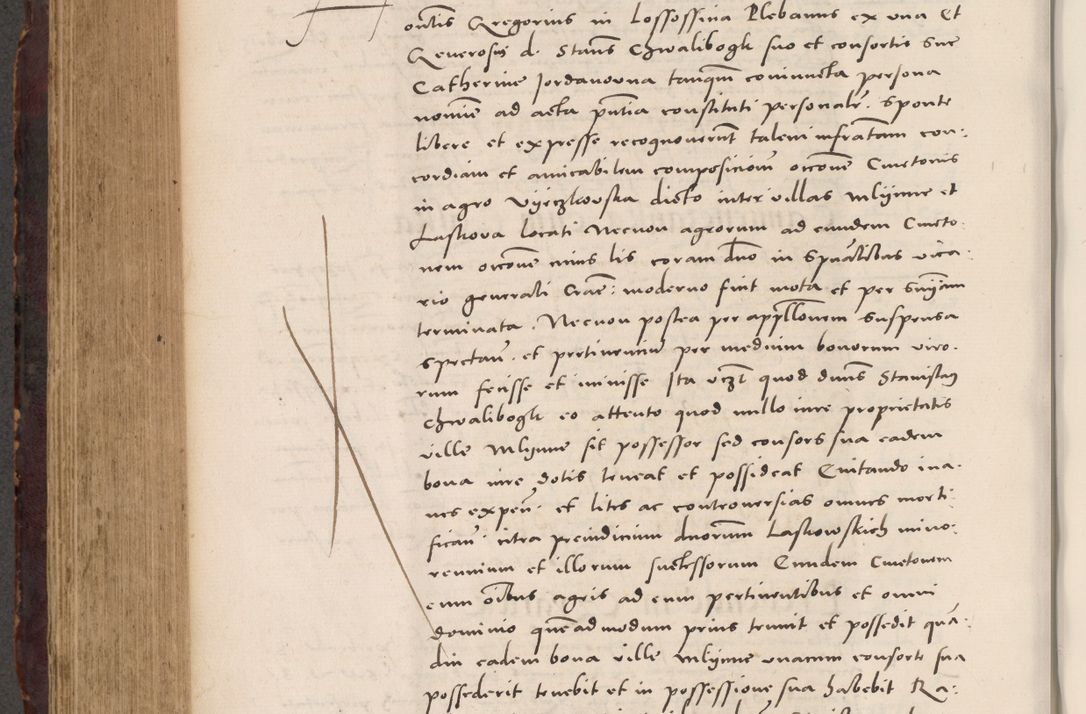 ontis Gregorius in Lossossina Plebanus ex una Et
Generosus d. Stanis Chwalibogk suo et consortis sue
Catherine Jordanowna tanqm coniuncta persona
nomine ad acta pntia constituti personalr. sponte
libere et expresse recognoverunt talem infrascriptam con:
cordiam et amicabilem composicionem occone Cmetonis
in agro Vyeczkowska dicto inter villas mlijnne et
Laskova locati Necnon agrorum ad eundem Cmeto:
nem occone cuius lis coram dno in spualibus vica:
rio generali Crac: moderno fuit mota et per sniam
terminata. Necnon postea per appellonem suspensa
spectan. et pertinencium per medium bonorum viro:
rum fecisse et iniisse Ita vczt quod dnus Stanislaus
Chwalibogk eo attento quod nullo iure proprietatis
ville mlijnne sit possessor sed consors sua eadem
bona iure dotis teneat et possideat Evitando ina:
nes expens. et lites ac controversias omnes morti:
fican. citra preiudicium dnorum Laskowskich mino:
rennium et illorum successorum Eundem Cmetonem
cum oibus agris ad eum pertinentibus et omni
dominio quead modum prius tenuit et possedit qua:
diu eadem bona ville mlijnne unacum consorte sua
possederit tenebit et in possessione sua habebit Ra: